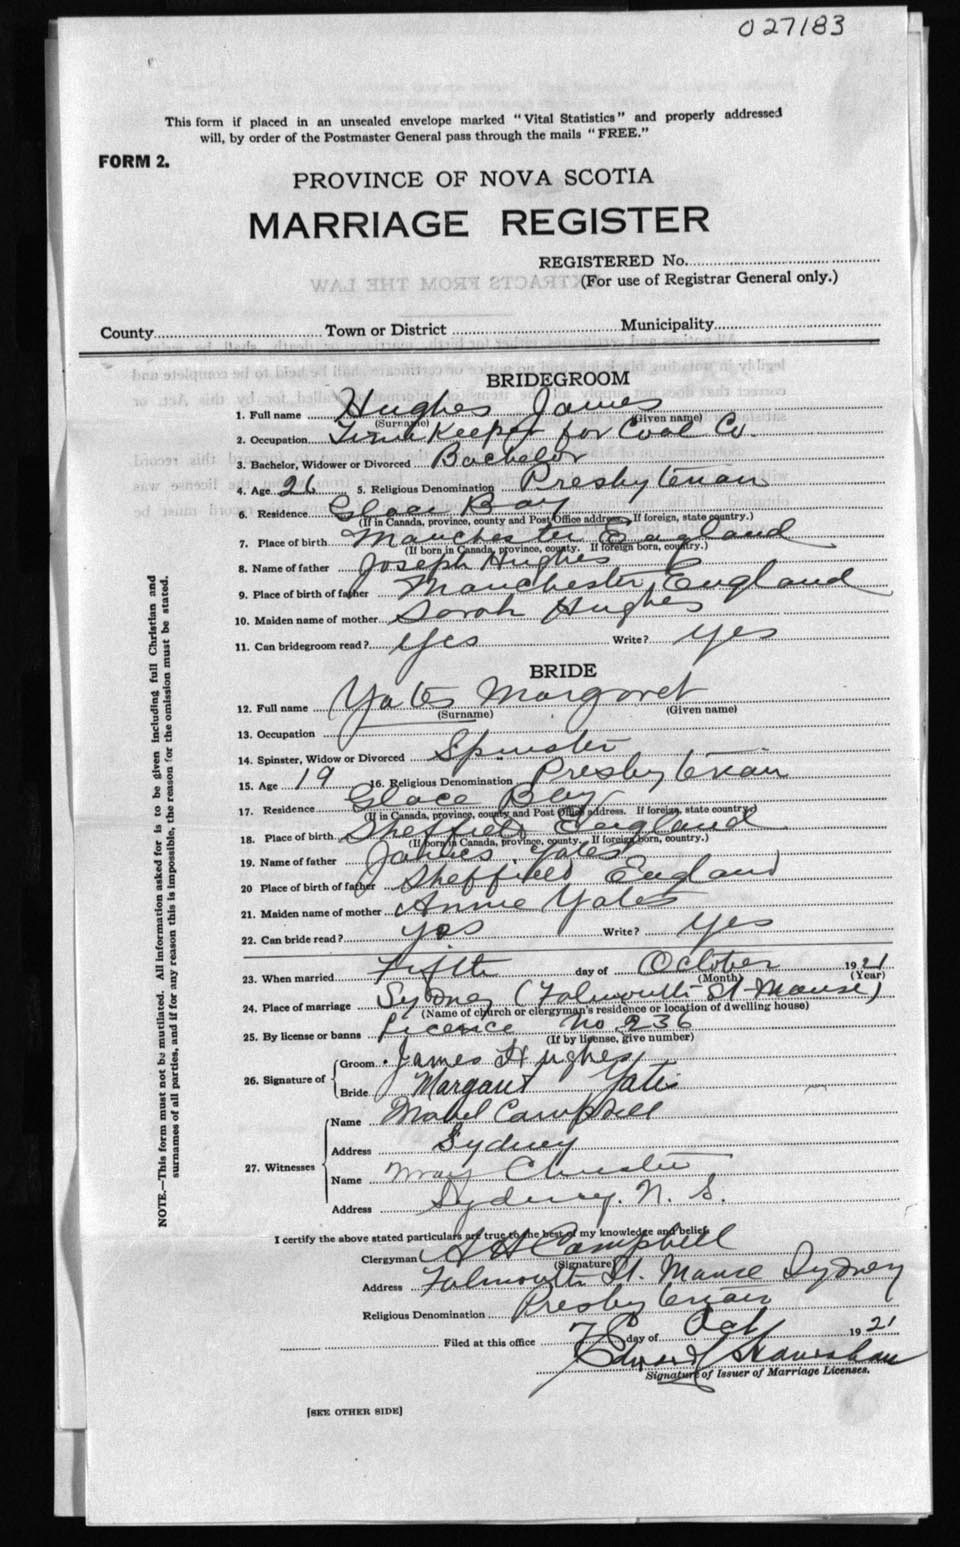 027183
This form if placed in an unsealed envelope marked "Vital Statistics" and properly addressed
will, by order of the Postmaster General pass through the mails "FREE."
FORM 2.
PROVINCE OF NOVA SCOTIA
MARRIAGE REGISTER
REGISTERED No.
(For use of Registrar General only.)
County Town or District Municipality
BRIDEGROOM
1. Full name Hughes James
(Surname) (Given name)
2. Occupation Time Keeper for Coal Co.
3. Bachelor, Widower or Divorced Bachelor
4. Age 26 5. Religious Denomination Presbyterian
6. Residence Glace Bay
(If in Canada, province, county and Post Office address. If foreign, state country.)
7. Place of birth Manchester England
(If born in Canada, province, county. If foreign born, country.)
8. Name of father Joseph Hughes
9. Place of birth of father Manchester, England
10. Maiden name of mother Sarah Hughes
11. Can bridegroom read? Yes Write? Yes
BRIDE
12. Full name Yates Margaret
(Surname) (Given name)
13. Occupation
14. Spinster, Widow or Divorced Spinster
15. Age 19 16. Religious Denomination Presbyterian
17. Residence Glace Bay
(If in Canada, province, county and Post Office address. If foreign, state country.)
18. Place of birth Sheffield England
(If born in Canada, province, county. If foreign born, country.)
19. Name of father James Yates
20 Place of birth of father Sheffield England
21. Maiden name of mother Annie Yates
22. Can bride read? yes Write? yes
23. When married Fifth day of October 1921
(Month) (Year)
24. Place of marriage Sydney (Falmouth St Manse)
(Name of church or clergyman's residence or location of dwelling house)
25. By license or banns Licence No 236
(If by license, give number)
26. Signature of
Groom James Hughes
Bride Margaret Yates
27. Witnesses
Name Mabel Campbell
Address Sydney
Name Mary
Address Sydney. N. S.
I certify the above stated particulars are true to the best of my knowledge and belief.
Clergyman A H Campbell
(Signature)
Address Falmouth St. Manse Sydney
Religious Denomination Presbyterian
Filed at this office day of Oct 1921
Edward
Signature of Issuer of Marriage Licenses.
[SEE OTHER SIDE]
NOTE.—This form must not be mutilated. All information asked for is to be given including full Christian and
surnames of all parties, and if for any reason this is impossible, the reason for the omission must be stated.